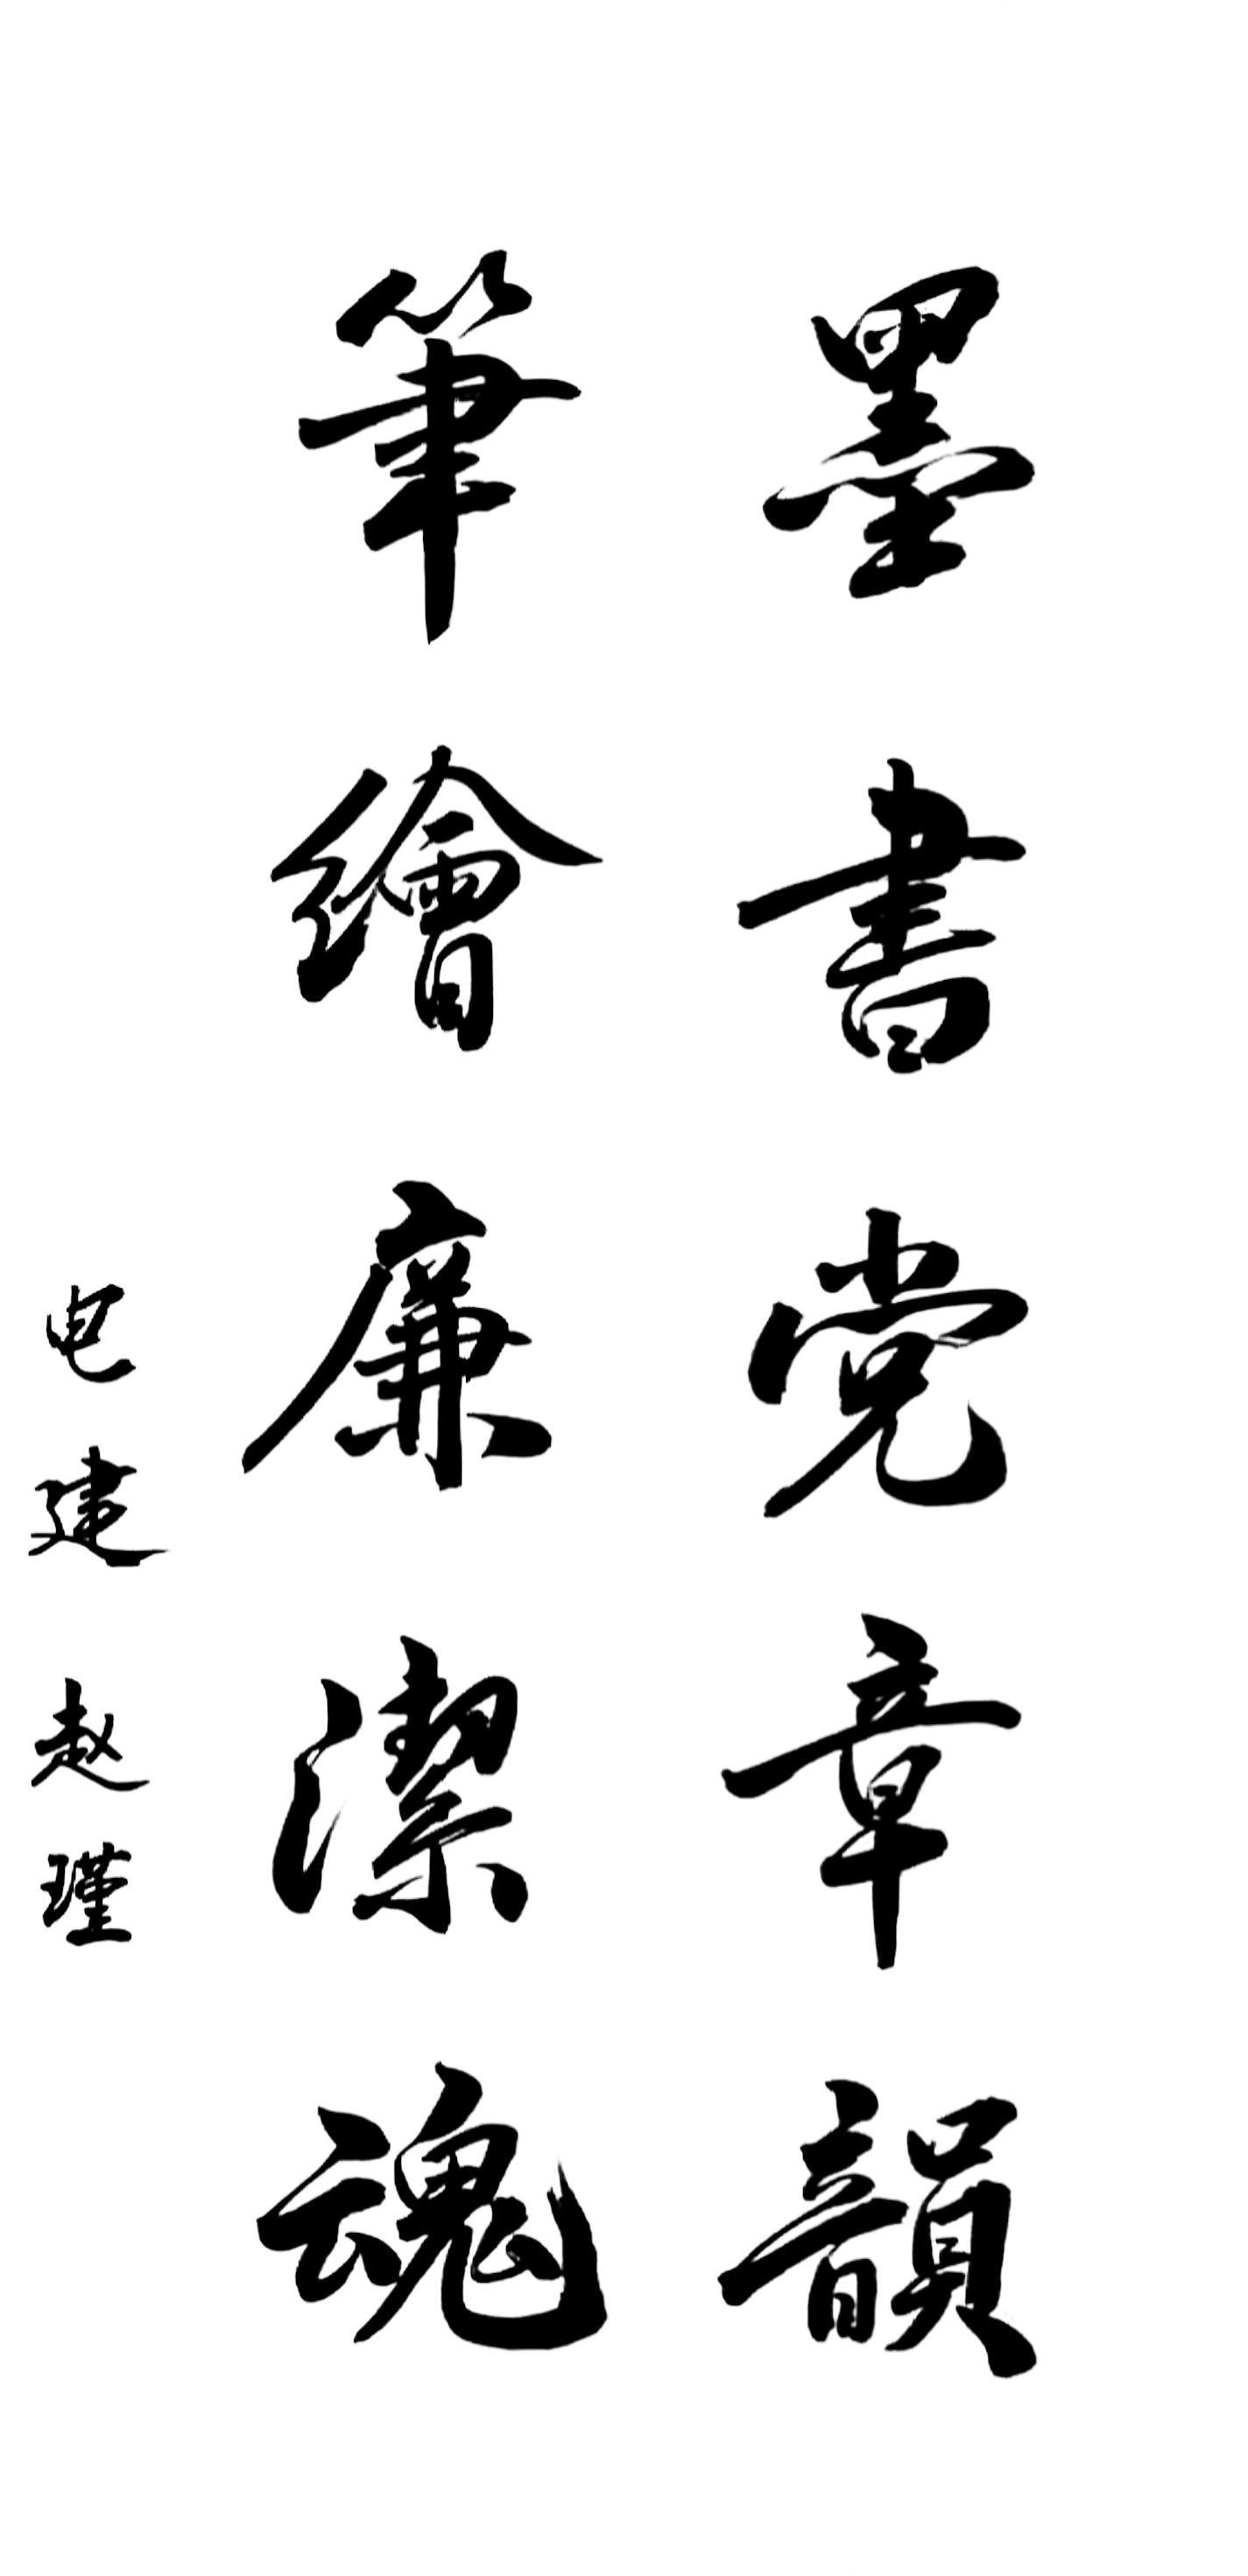 墨書党章韻
筆繪廉潔魂
电建 赵瑾